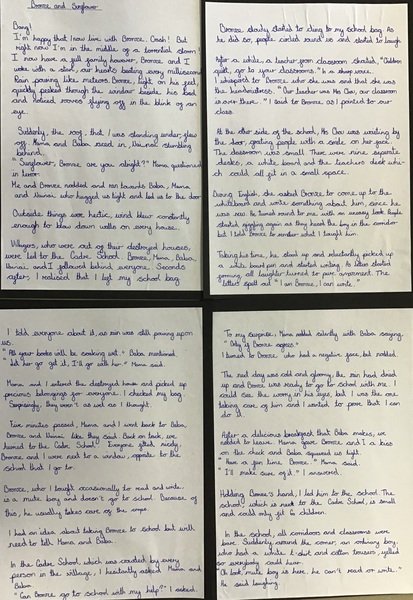 Bronze and Sunflower
Bang!
I'm happy that I now live with Bronze. Crash! But
right now I'm in the middle of a torrential storm!
I now have a full family however, Bronze and I
woke with a start, our hearts beating every millisecond.
Rain pouring like meteors. Bronze, light on his feet
quickly peeked through the window beside his bed
and noticed rooves flying off in the blink of an
eye.
Suddenly, the roof, that I was standing under, flew
off. Mama and Baba raced in, Nainai stumbling
behind.
"Sunflower, Bronze are you alright?" Mama questioned
in terror.
Me and Bronze nodded and ran towards Baba, Mama
and Nainai who hugged us tight and led us to the door.
Outside things were hectic, wind blew constantly
enough to blow down walls on every house.
Villagers, who were out of their destroyed houses,
were led to the Cadre School. Bronze, Mama, Baba,
Nainai, and I followed behind everyone. Seconds
after, I realised that I left my school bag.
I told everyone about it, as rain was still pouring upon
us.
"All your books will be soaking wet." Baba mentioned.
" Let her go get it, I'll go with her." Mama said.
Mama and I entered the destroyed house and picked up
precious belongings for everyone. I checked my bag.
Surprisingly, they weren't as wet as I thought.
Five minutes passed, Mama and I went back to Baba,
Bronze and Nainai, like they said. Back on track, we
hurried to the Cadre School. Everyone sitted nicely,
Bronze and I were next to a window, opposite to the
school that I go to.
Bronze, who I taught occasionally to read and write,
is a mute boy and doesn't go to school. Because of
this, he usually takes care of the crops.
I had an idea about taking Bronze to school but will
need to tell Mama and Baba.
In the Cadre School, which was crowded by every
person in the village, I hesitantly asked Mama and
Baba-
"Can Bronze go to school with my help?" I asked.
To my surprise, Mama nodded silently with Baba saying,
" Only if Bronze agrees."
I turned to Bronze who had a negative face, but nodded.
The next day was cold and gloomy, the rain had dried
up and Bronze was ready to go to school with me. I
could see the worry in his eyes, but I was the one
taking care of him and I wanted to prove that I can
do it.
After a delicious breakfast that Baba makes, we
needed to leave. Mama gave Bronze and I a kiss
on the cheek and Baba squeezed us tight.
" Have a fun time Bronze." Mama said.
" I'll make sure of it." I answered.
Holding Bronze's hand, I led him to the school. The
school, which is next to the Cadre School, is small
and could only fit 16 children.
In the school, all corridors and classrooms were
bare. Suddenly around the corner, an ordinary boy,
who had a white t-shirt and cotton trousers, yelled
so everyone could hear.
"Oh look mute boy is here, he can't read or write."
He said laughing.
Bronze slowly started to cling to my school bag. As
he did so, people circled round us and started to laugh.
After a while, a teacher from classroom shouted, "Children
quiet, go to your classrooms." In a sharp voice.
I whispered to Bronze who she was and that she was
the headmistress. " Our teacher was Ms Chow, our classroom
is over there. " I said to Bronze as I pointed to our
class.
At the other side of the school, Ms Chow was waiting by
the door, greeting people with a smile on her face.
The classroom was small. There were nine separate
desks, a white board and the teachers desk whi-
ch could all fit in a small space.
During English, she asked Bronze to come up to the
whiteboard and write something about him, since he
was new. He turned round to me with an uneasy look. People
started giggling again as they heard the boy in the corridor
but I told Bronze to remember what I taught him.
Taking his time, he stood up and reluctantly picked up
a white board pen and started writing. As letters started
forming, all laughter turned to pure amazement. The
letters spelt out "I am Bronze, I can write."